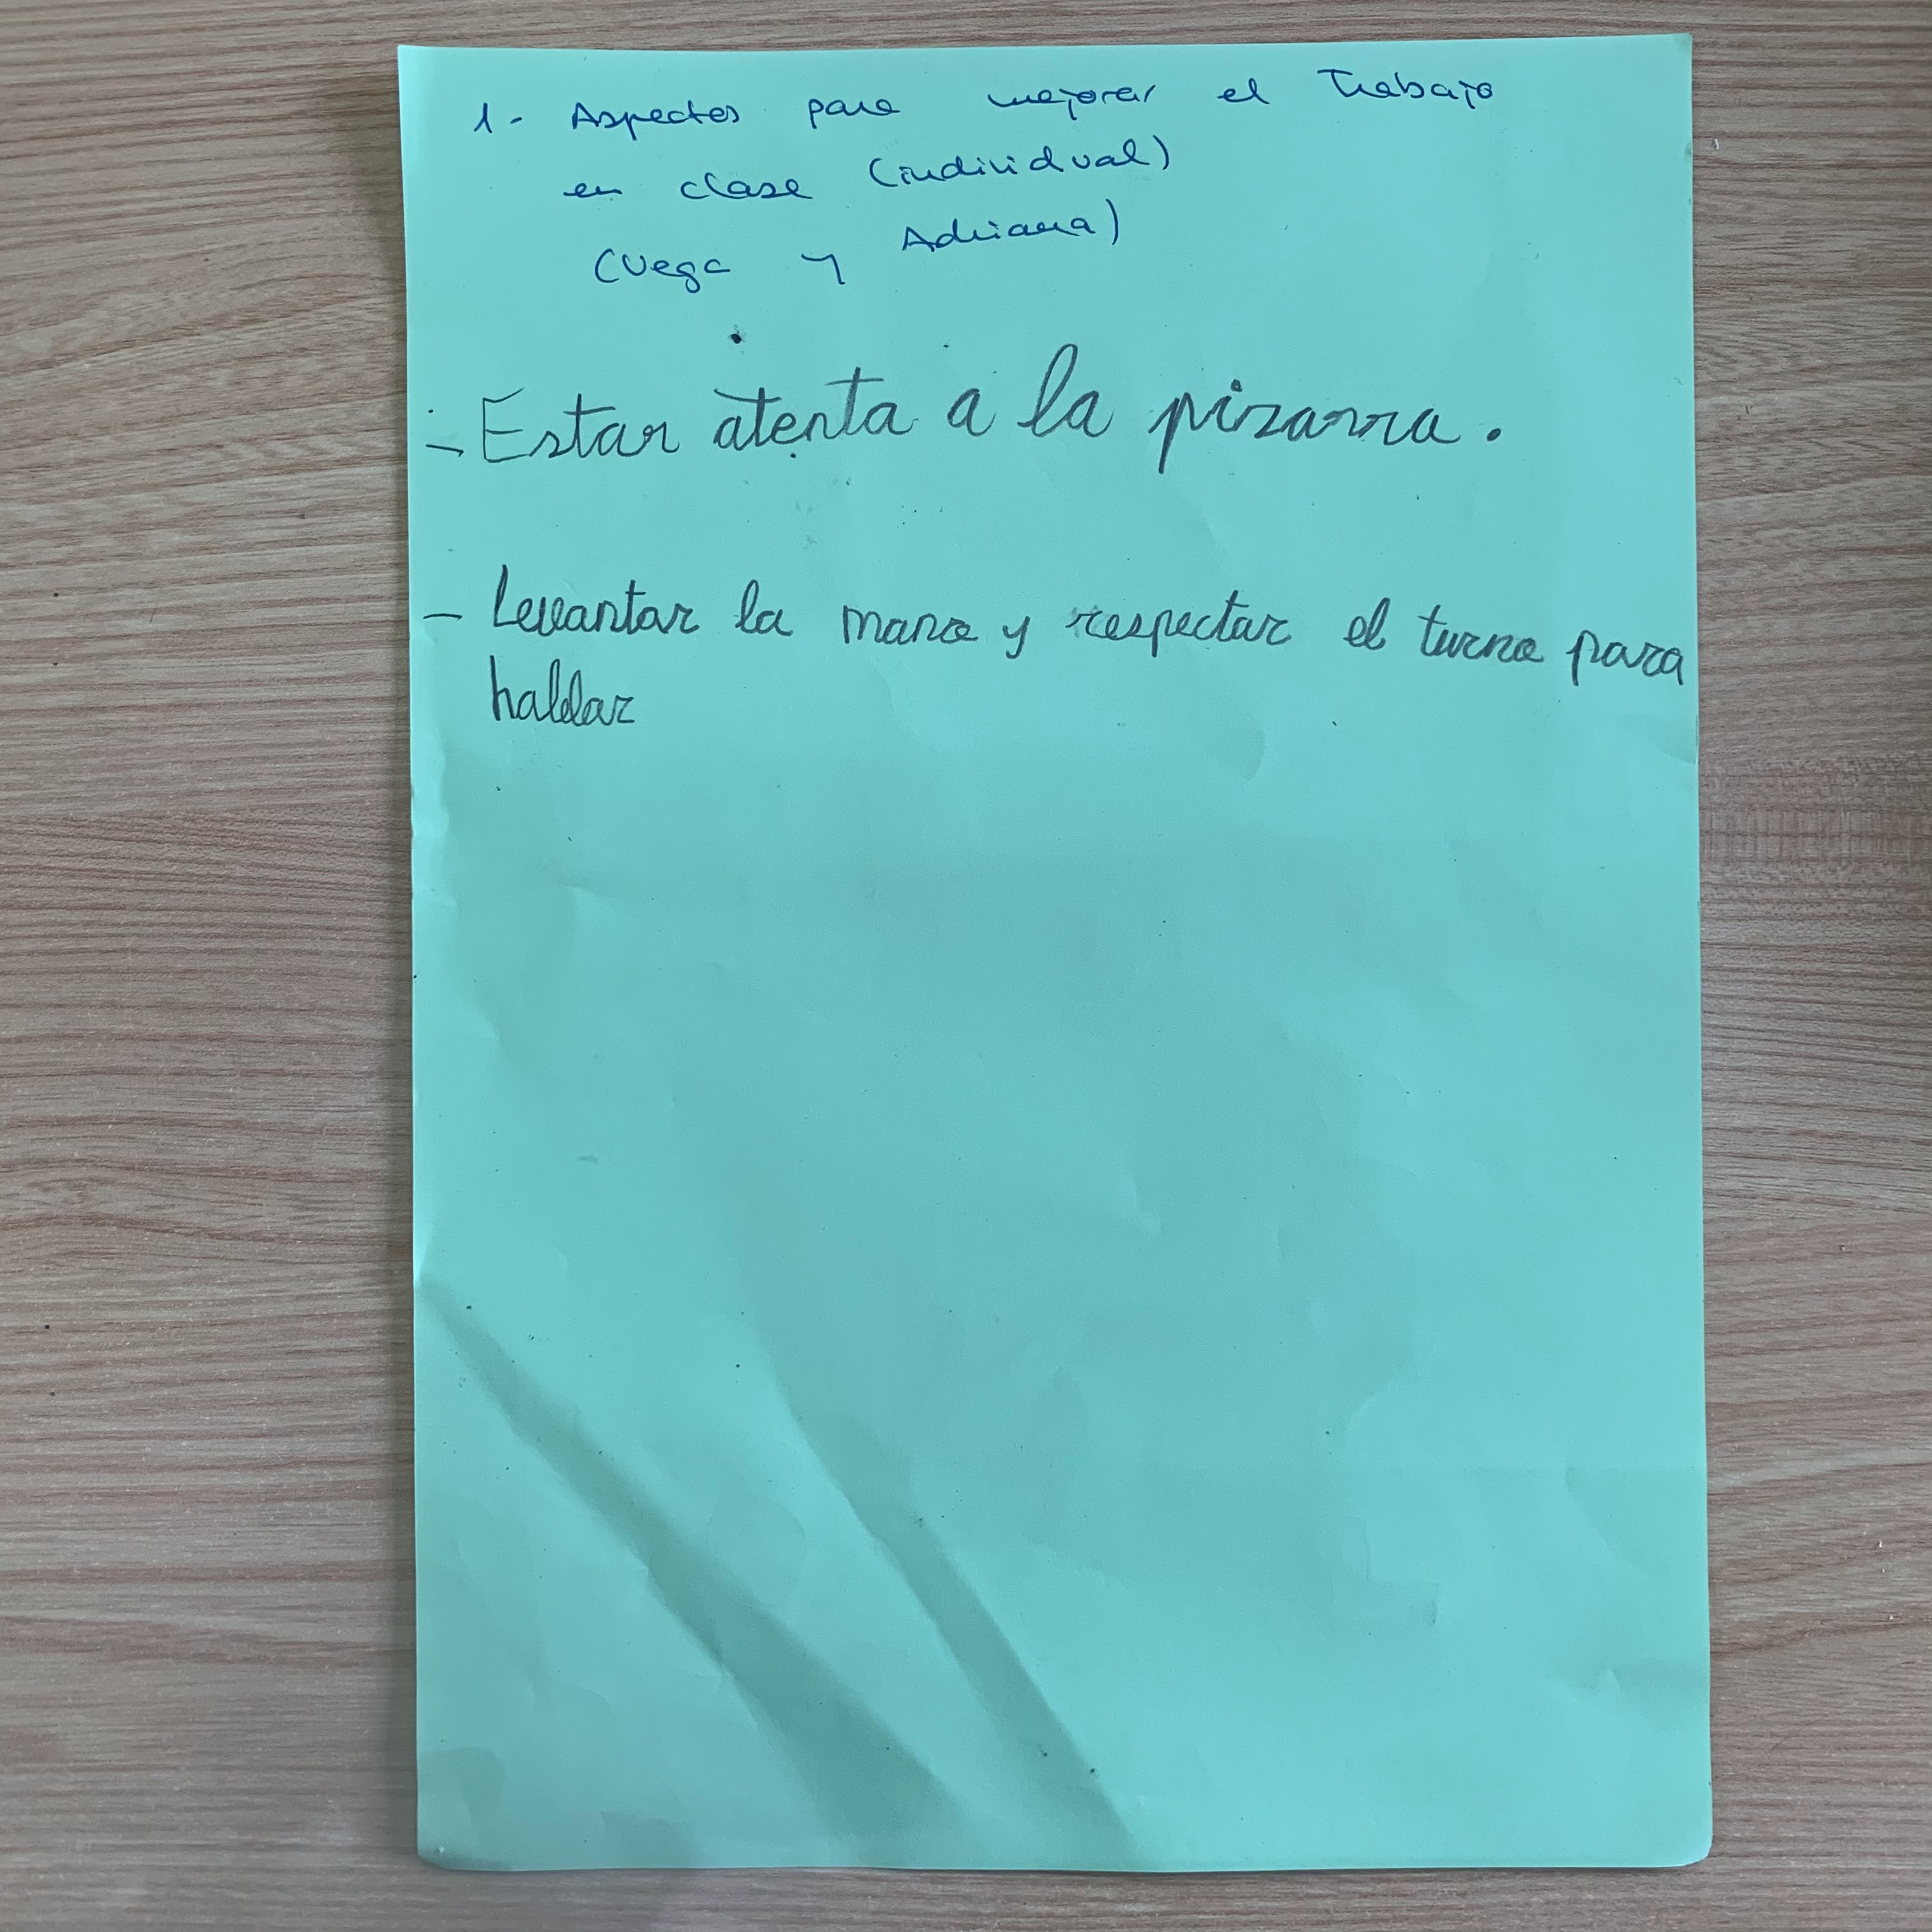 1- Aspectos para mejorar el Trabajo
en clase (individual)
(Vega y Adriana)
- Estar atenta a la pizarra.
- Levantar la mano y respectar el turno para
hablar